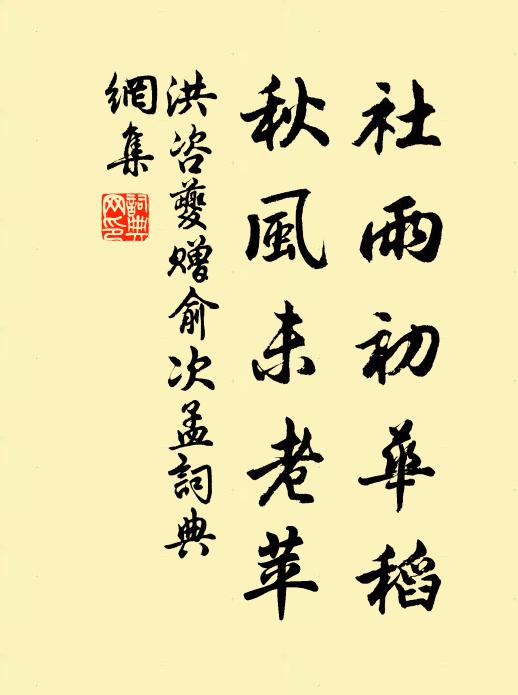 社雨初華稻
秋風未老苹
洪咨夔赠俞次孟詞典
網集
詞典
网印